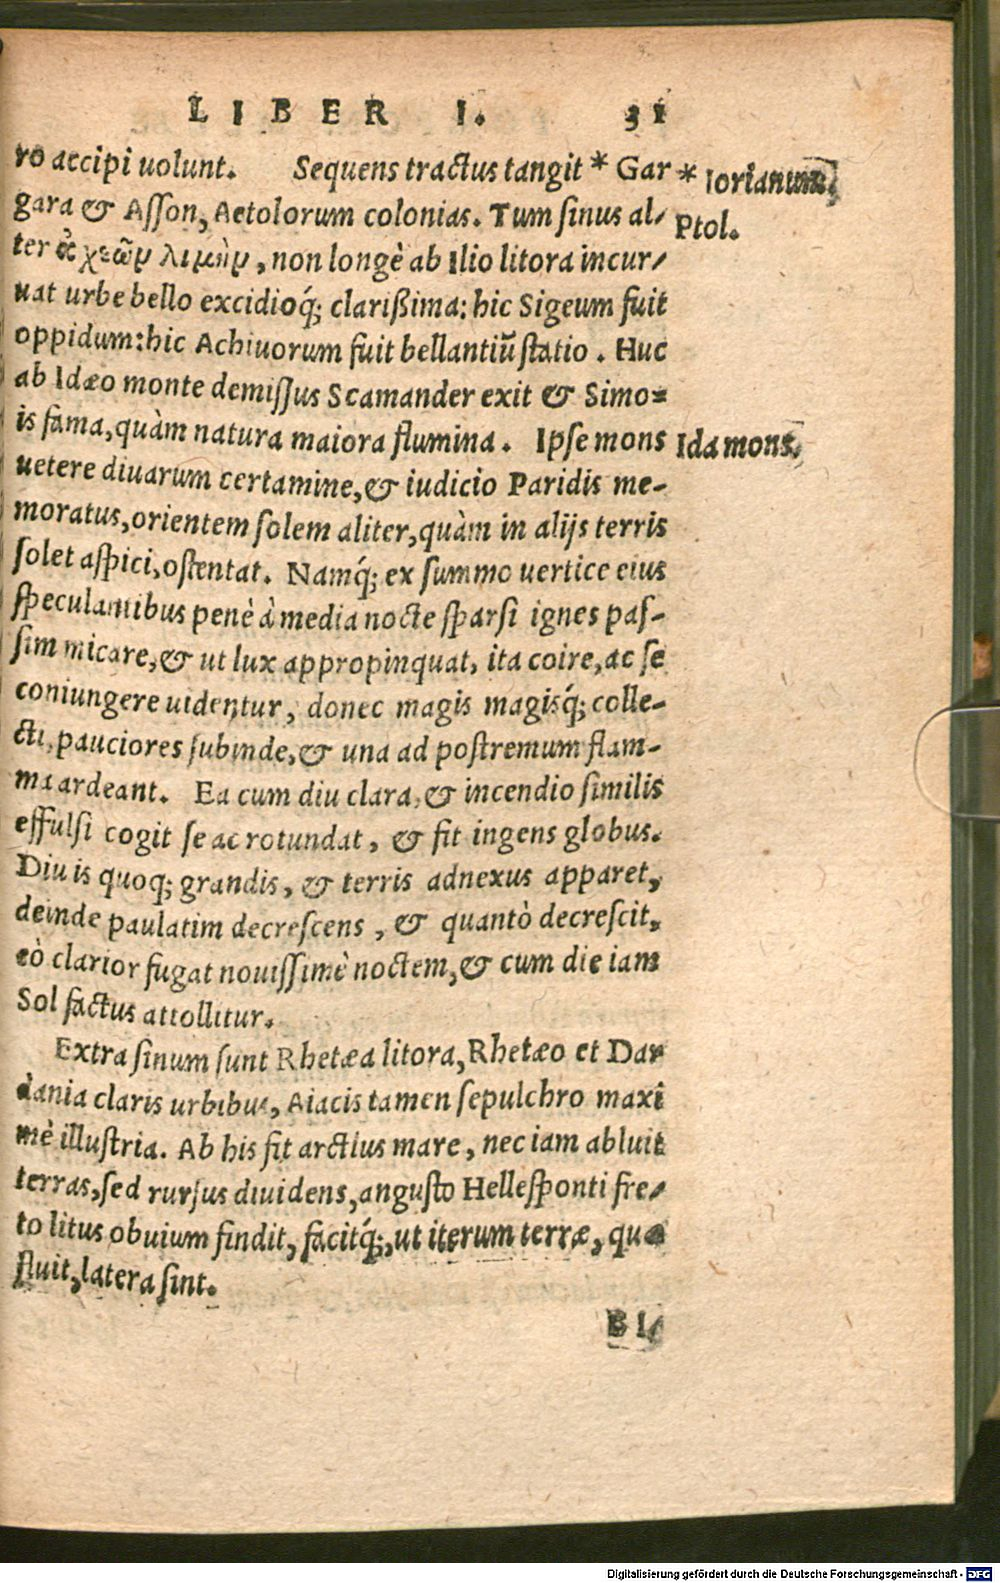 LIBER I. 31
ro accipi uolunt. Sequens tractus tangit * Gar
* Iorianum.
gara & Asson, Aetolorum colonias. Tum sinus al-
Ptol.
ter ἀχαιῶν λιμὴν, non longè ab Ilio litora incur-
uat urbe bello excidioq́; clarißima: hic Sigeum fuit
oppidum: hic Achiuorum fuit bellantiũ statio. Huc
ab Idæo monte demissus Scamander exit & Simo-
is fama, quàm natura maiora flumina. Ipse mons
Ida mons.
uetere diuarum certamine, & iudicio Paridis me-
moratus, orientem solem aliter, quàm in alijs terris
solet aspici, ostentat. Namq́; ex summo uertice eius
speculantibus penè à media nocte sparsi ignes pas-
sim micare, & ut lux appropinquat, ita coire, ac se
coniungere uidentur, donec magis magisq́; colle-
cti, pauciores subinde, & una ad postremum flam-
ma ardeant. Ea cum diu clara, & incendio similis
effulsi cogit se ac rotundat, & fit ingens globus.
Diu is quoq; grandis, & terris adnexus apparet,
deinde paulatim decrescens, & quantò decrescit,
eò clarior fugat nouissimè noctem, & cum die iam
Sol factus attollitur.
Extra sinum sunt Rhetæa litora, Rhetæo et Dar
dania claris urbibus, Aiacis tamen sepulchro maxi
mè illustria. Ab his fit arctius mare, nec iam abluit
terras, sed rursus diuidens, angusto Hellesponti fre-
to litus obuium findit, facitq́;, ut iterum terræ, qua
fluit, latera sint.
BI-
Digitalisierung gefördert durch die Deutsche Forschungsgemeinschaft - DFG